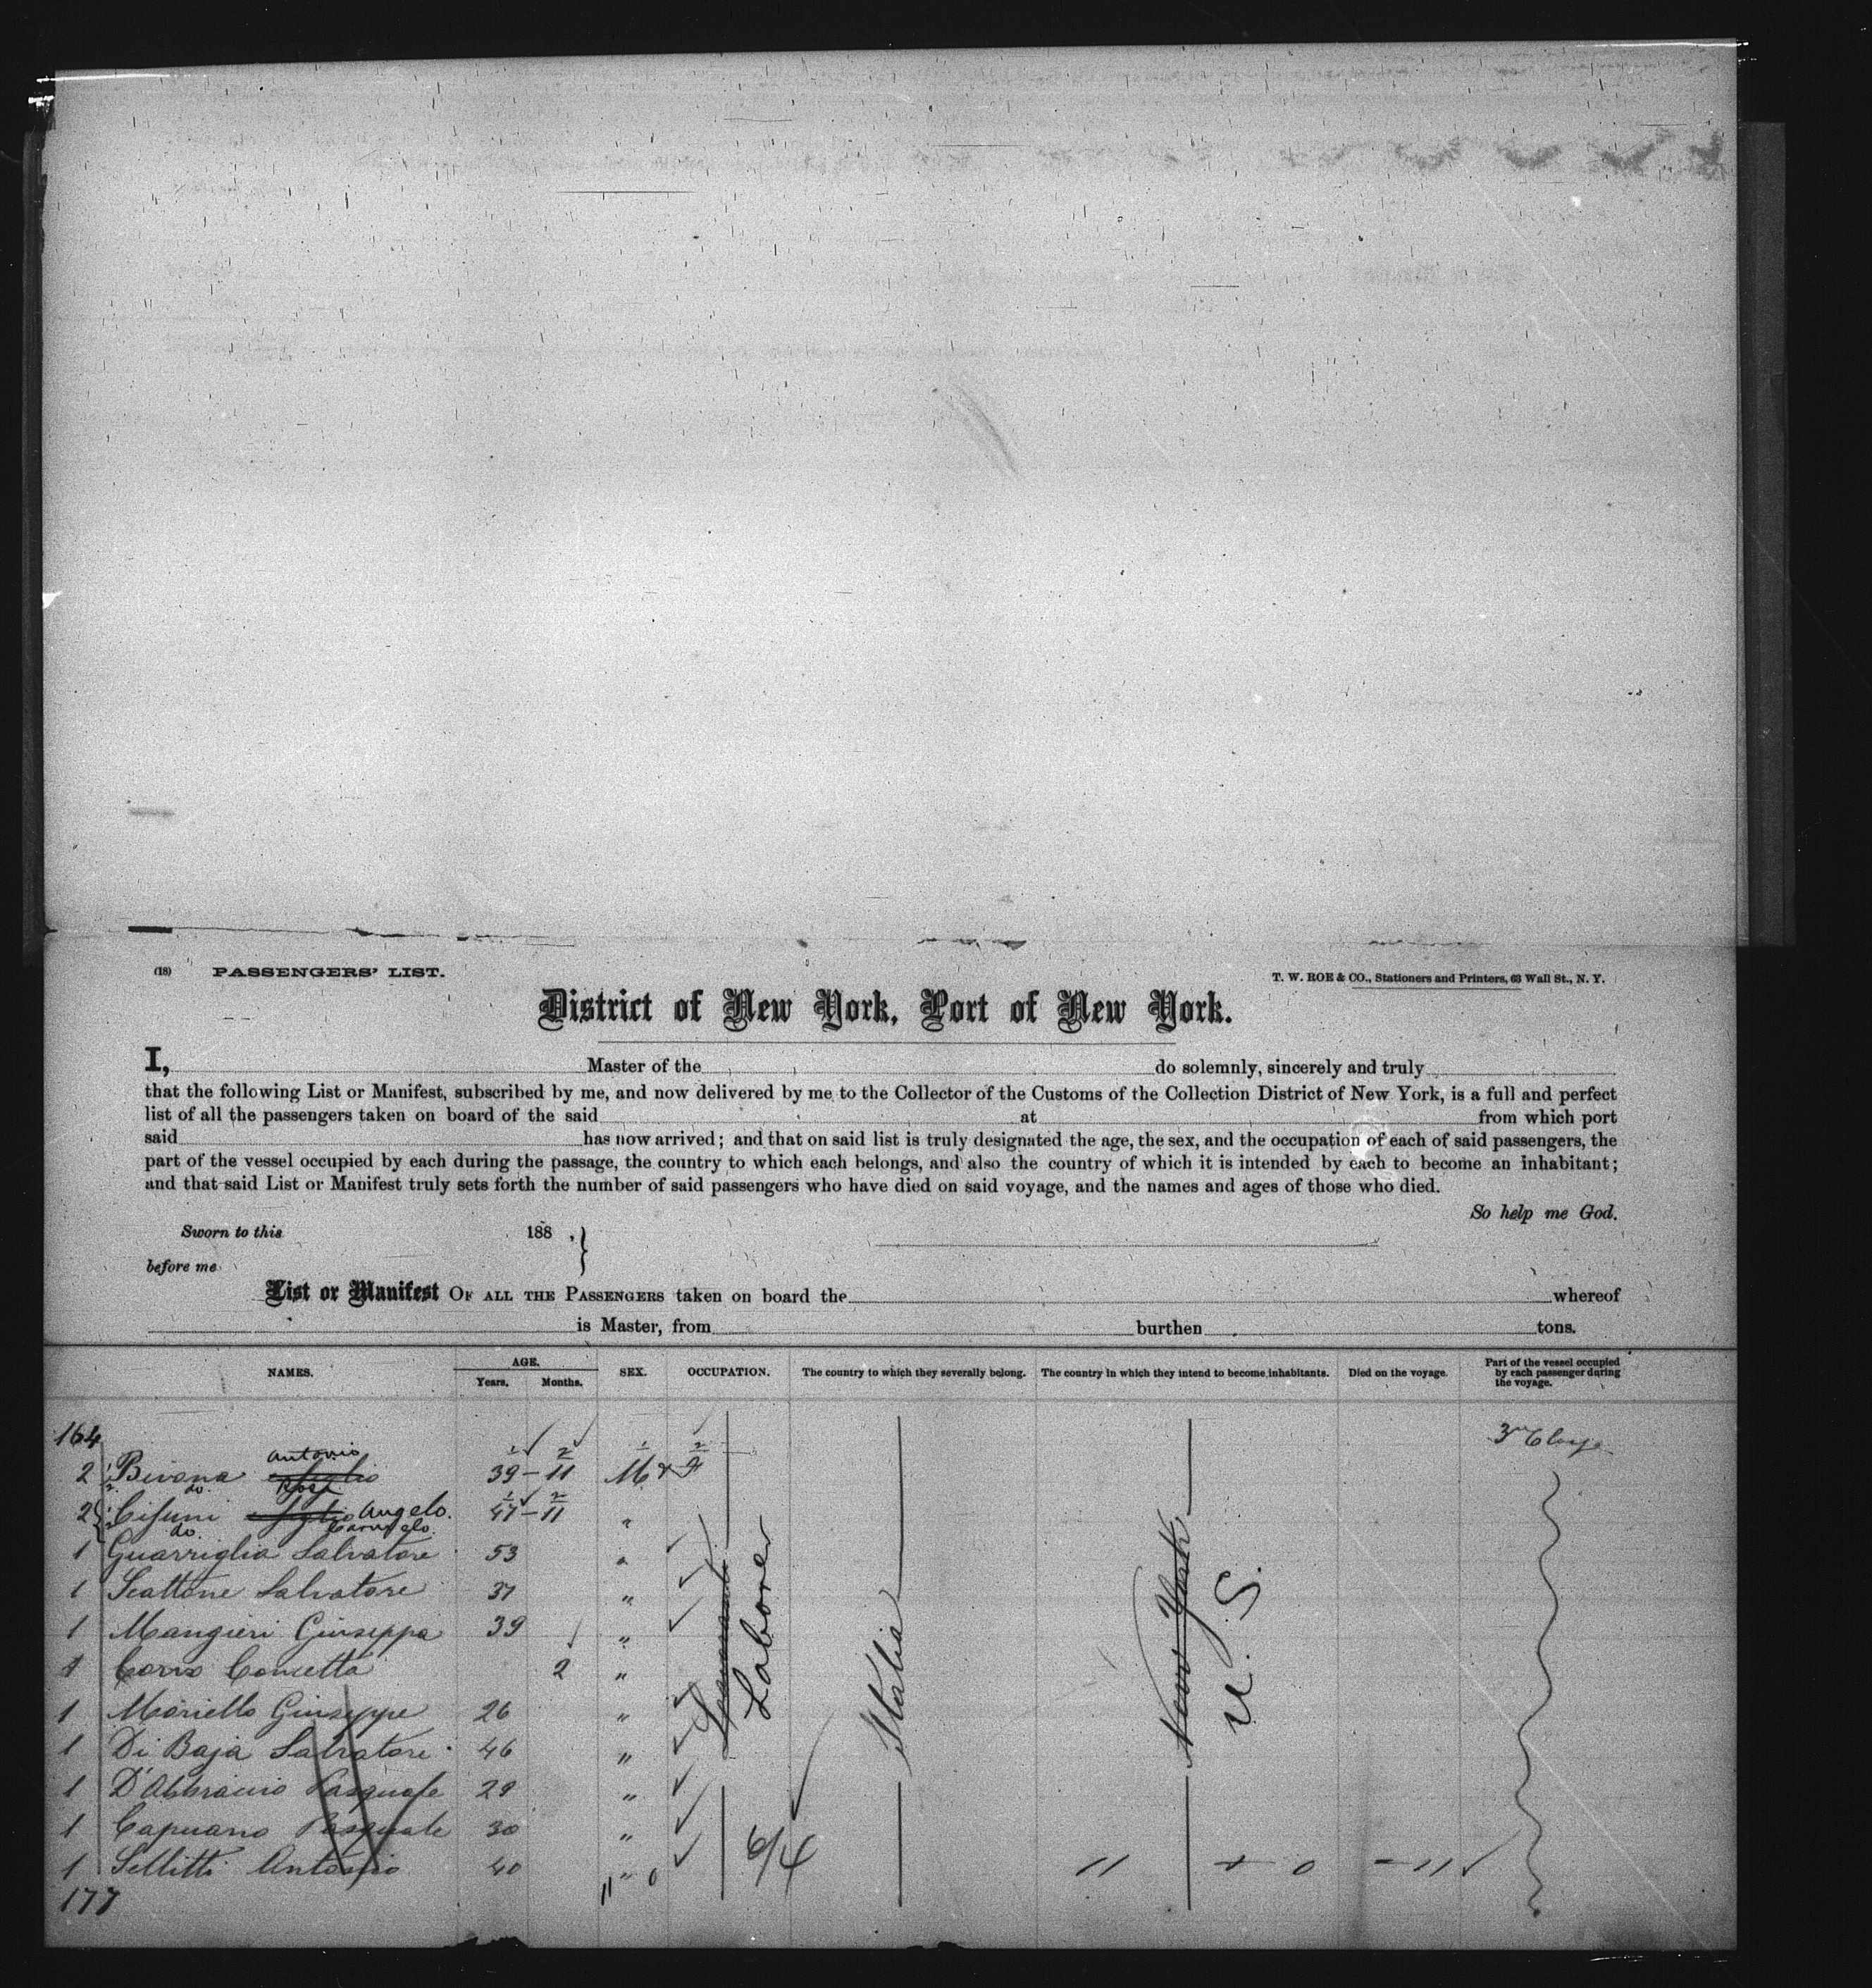 (18) PASSENGERS' LIST. T. W. ROE & CO., Stationers and Printers, 63 Wall St., N. Y.
District of New York, Port of New York.
I, Master of the do solemnly, sincerely and truly
that the following List or Manifest, subscribed by me, and now delivered by me to the Collector of the Customs of the Collection District of New York, is a full and perfect
list of all the passengers taken on board of the said at from which port
said has now arrived; and that on said list is truly designated the age, the sex, and the occupation of each of said passengers, the
part of the vessel occupied by each during the passage, the country to which each belongs, and also the country of which it is intended by each to become an inhabitant;
and that said List or Manifest truly sets forth the number of said passengers who have died on said voyage, and the names and ages of those who died.
So help me God.
Sworn to this 188 ,
before me
List or Manifest OF ALL THE PASSENGERS taken on board the whereof
is Master, from burthen tons.
NAMES. AGE. Years. Months. SEX. OCCUPATION. The country to which they severally belong. The country in which they intend to become inhabitants. Died on the voyage. Part of the vessel occupied by each passenger during the voyage.
164
Antonio
2 Bivona 39 - 11 M
do Rosa
2 Cifuni Angelo. 47 - 11 "
do.
1 Guarriglia Salvatore 53 "
1 Scattone Salvatore 37 "
1 Mangieri Giuseppa 39 "
1 Corro Concetta 2 "
1 Moriello Giuseppe 26 "
1 Di Baja Salvatore 46 "
1 D'Abbracio Pasquale 29 "
1 Capuano Pasquale 30 "
1 Sellitti Antonio 40 "
177
Laborer
Italia
New York
U. S.
6/4
11 + 0 - 11
11 0